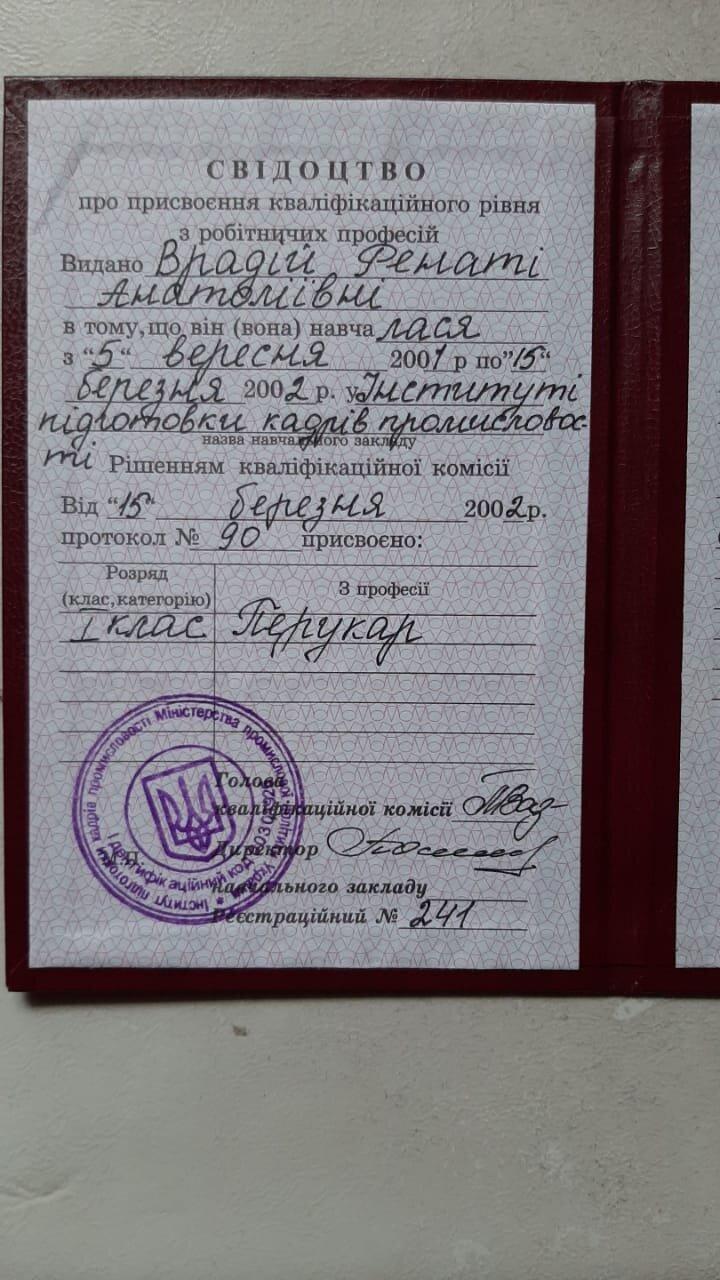 СВІДОЦТВО
про присвоєння кваліфікаційного рівня
з робітничих професій
Видано Врадій Ренаті
Анатоліївні
в тому, що він (вона) навчалася
з “5“ вересня 2001 р по”15“
березня 2002 р. у Інституті
підготовки кадрів промисловос-
назва навчального закладу
ті Рішенням кваліфікаційної комісії
Від “15“ березня 2002р.
протокол № 90 присвоєно:
Розряд
(клас, категорію)
З професії
I клас Перукар
Голова
кваліфікаційної комісії
Директор
М.П.
навчального закладу
Реєстраційний № 241
Міністерства промислової політики України * Інститут підготовки кадрів промисловості
Ідентифікаційний код